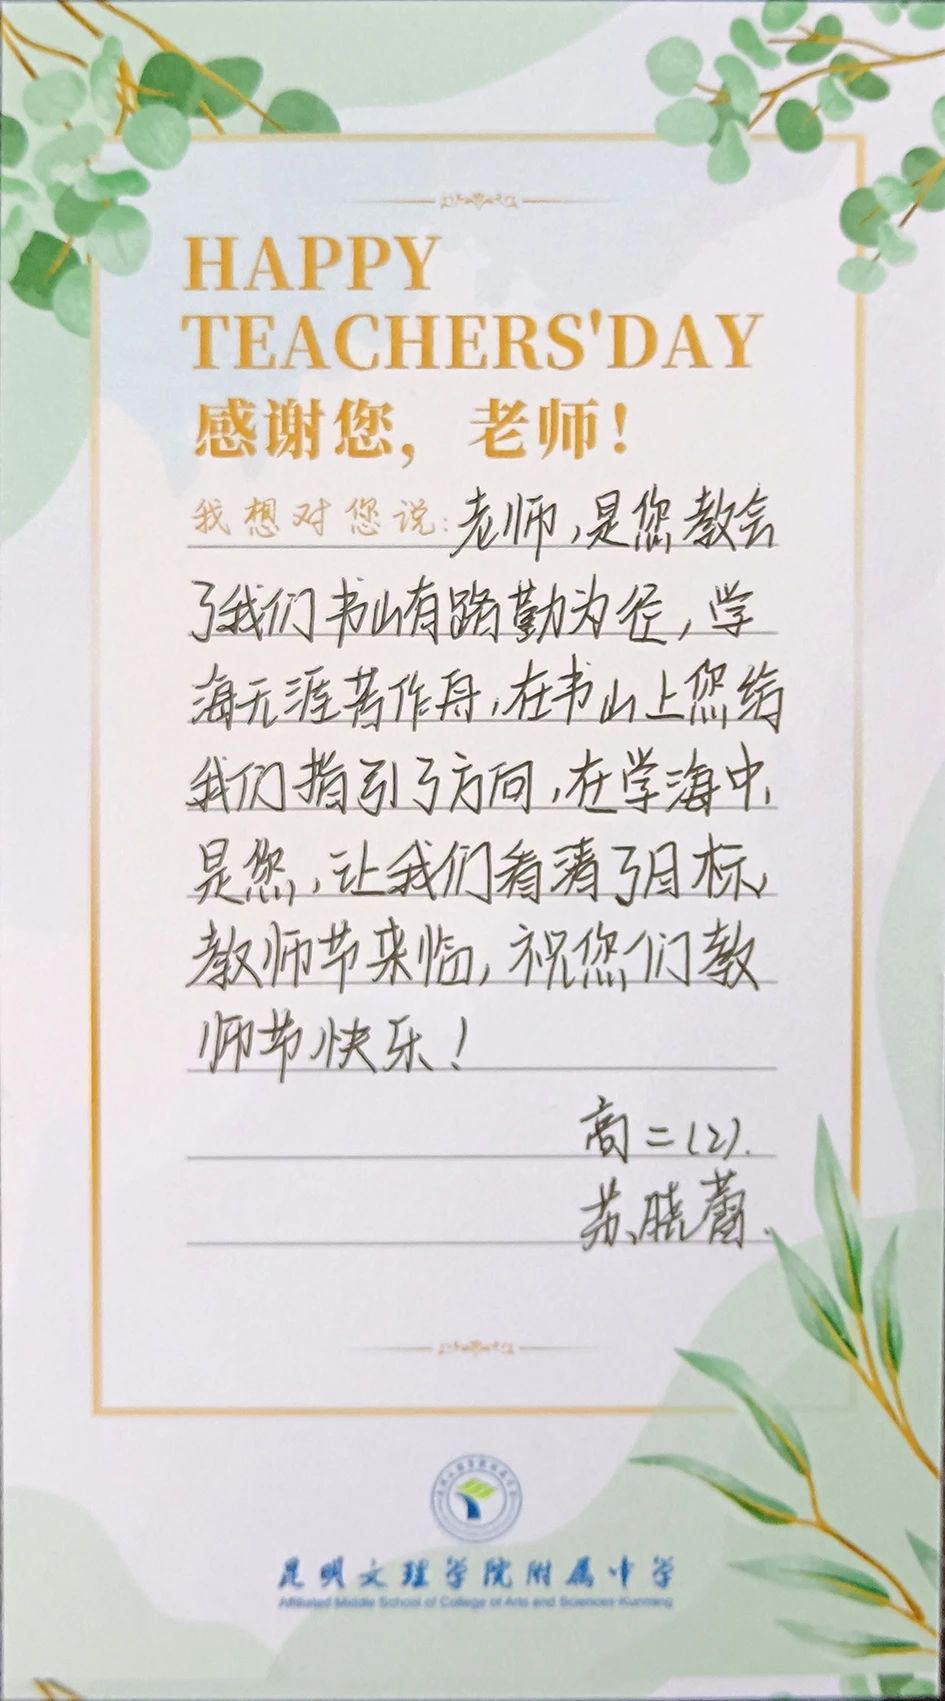 HAPPY
TEACHERS'DAY
感谢您，老师！
我想对您说：老师，是您教会
了我们书山有路勤为径，学
海无涯苦作舟，在书山上您给
我们指引了方向，在学海中，
是您，让我们看清了目标，
教师节来临，祝您们教
师节快乐！
高二（2）.
苏晓蕾.
昆明文理学院附属中学
Affiliated Middle School of College of Arts and Sciences Kunming